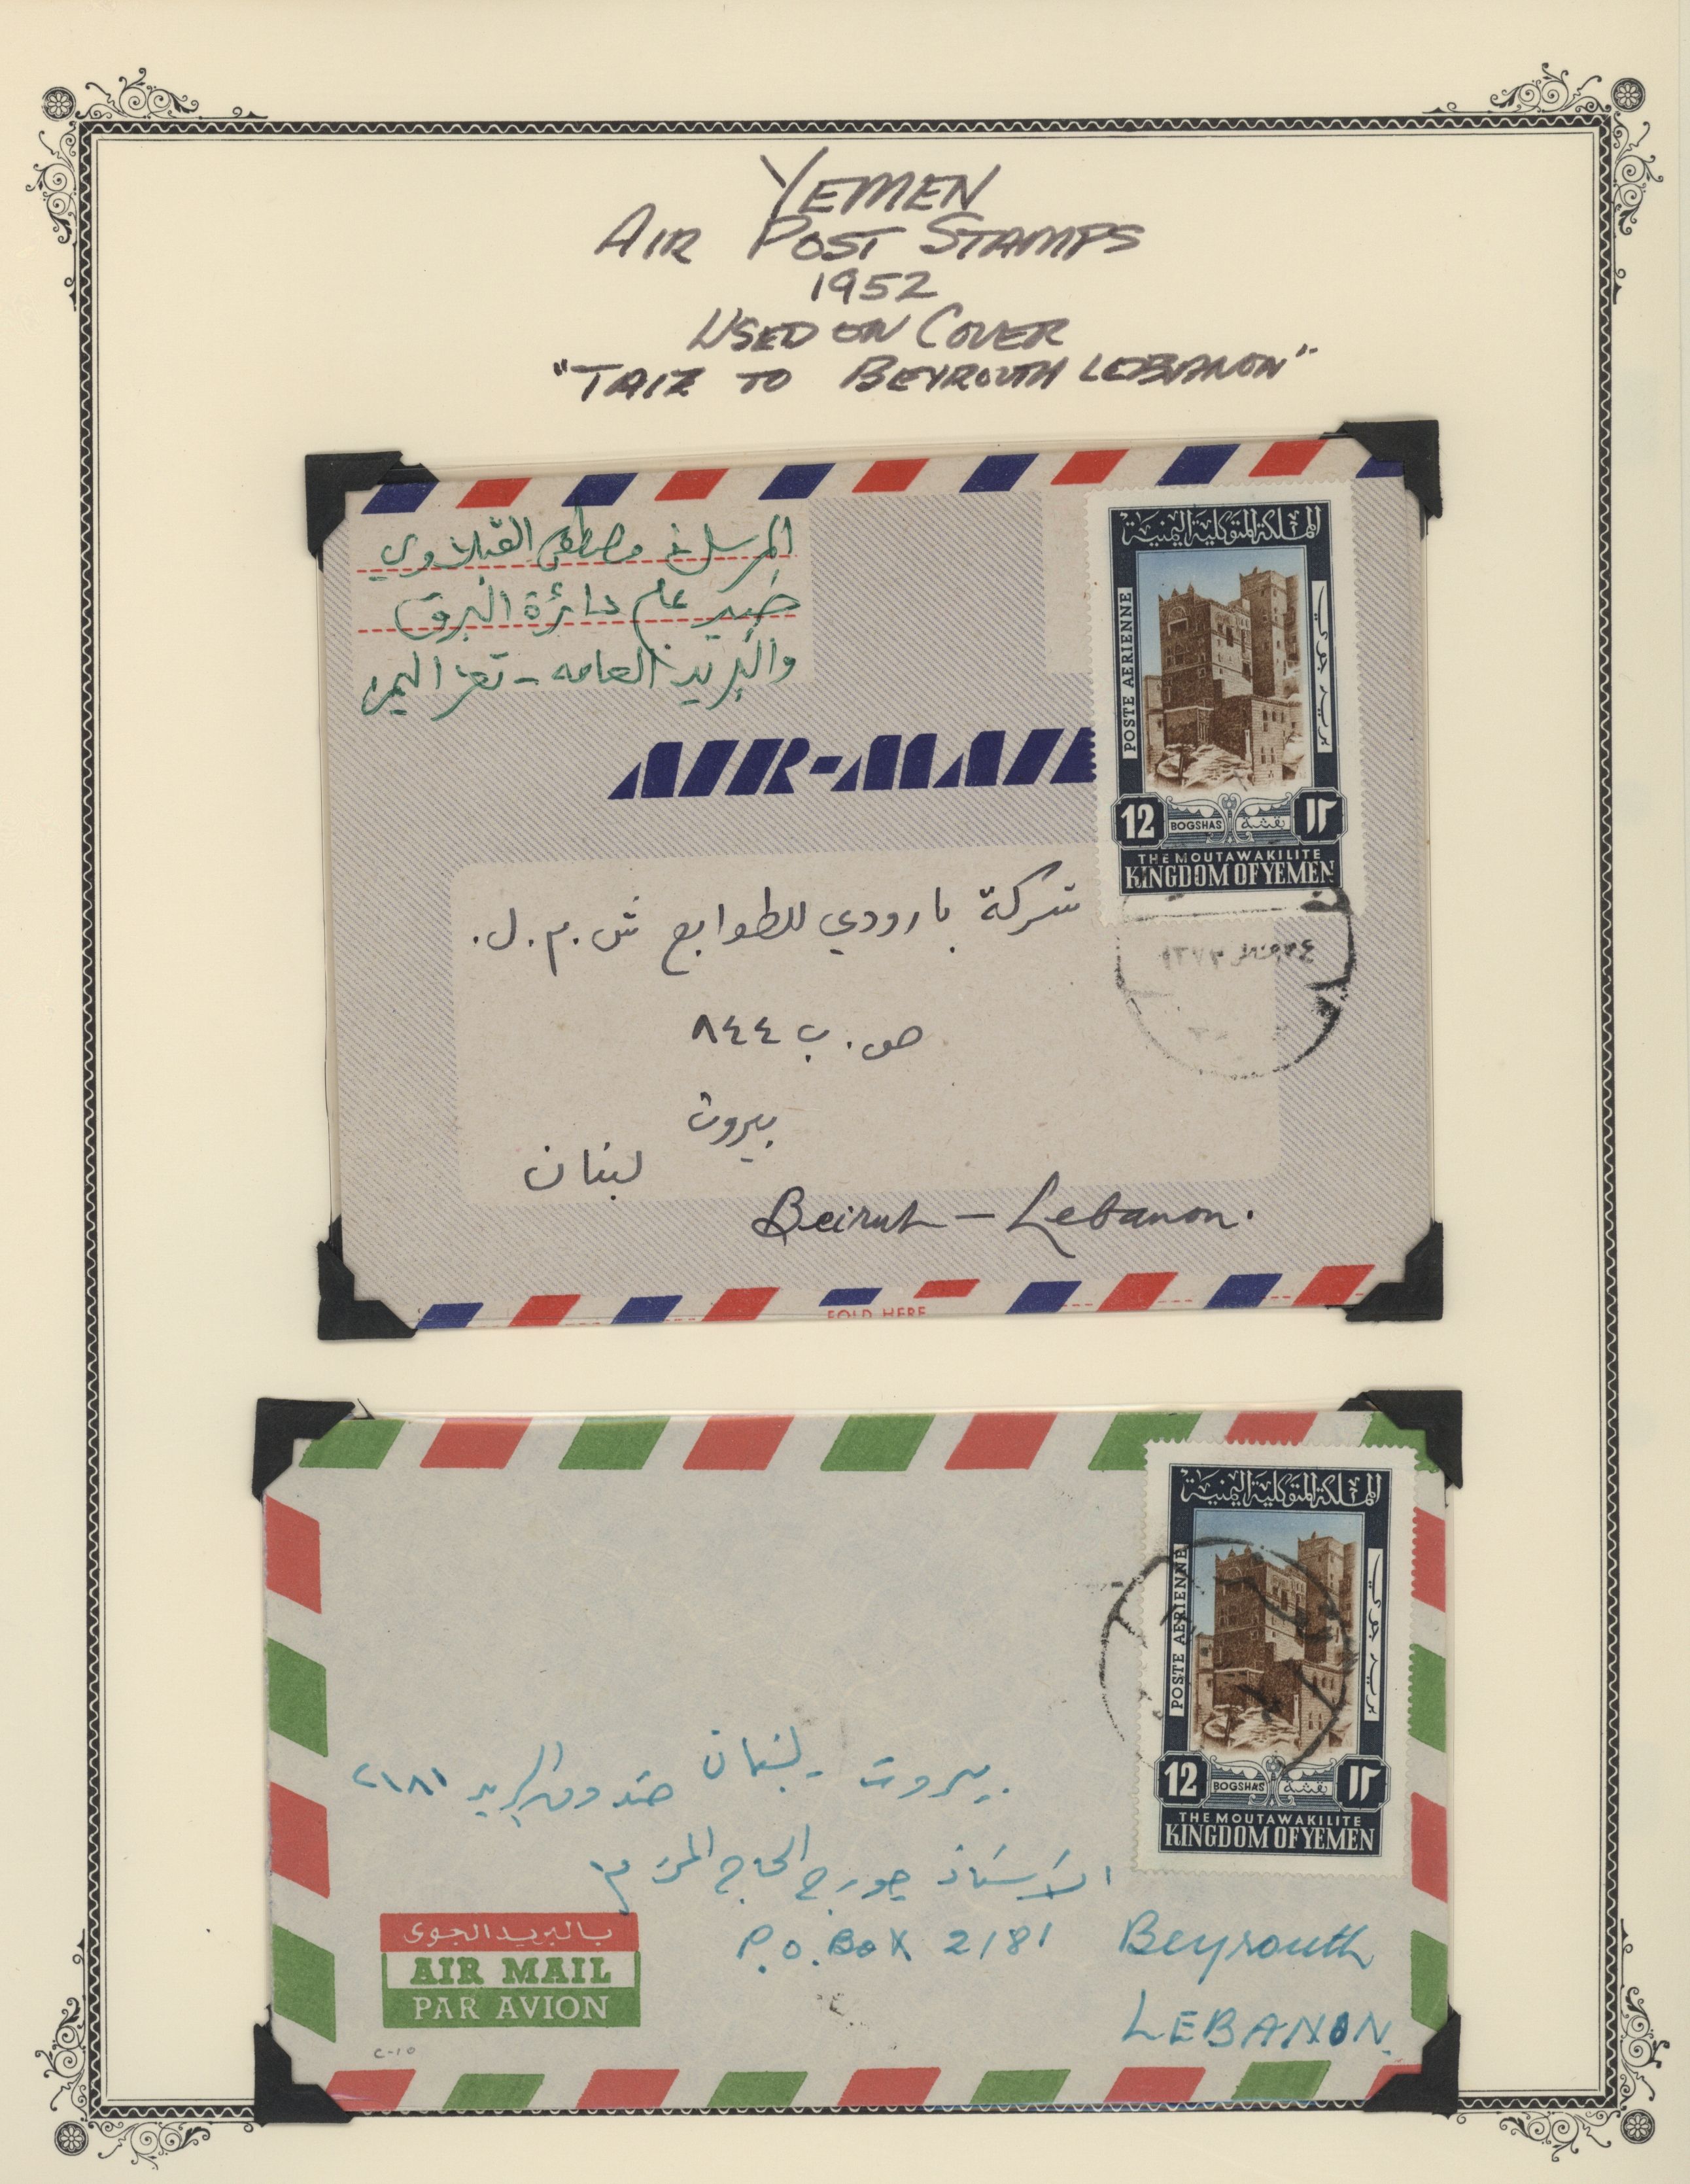 YEMEN
AIR POST STAMPS
1952
USED ON COVER
"TAIZ TO BEYROUTH LEBANON"
المرسل مصطفى القبلاوي
خبير عام دائرة البرق
والبريد العامه - تعز اليمن
AIR-MAIL
المملكة المتوكلية اليمنية
POSTE AERIENNE
بريد جوي
12 BOGSHAS بقشة ١٢
THE MOUTAWAKILITE
KINGDOM OF YEMEN
١٣٧٣
شركة بارودي للطوابع ش.م.ل.
ص.ب ٨٤٤
بيروت
لبنان
Beirut - Lebanon.
FOLD HERE
المملكة المتوكلية اليمنية
POSTE AERIENNE
بريد جوي
12 BOGSHAS بقشة ١٢
THE MOUTAWAKILITE
KINGDOM OF YEMEN
بيروت - لبنان صندوق البريد ٢١٨١
الاستاذ جورج الحاج المحترم
بالبريد الجوى
AIR MAIL
PAR AVION
P.O. Box 2181 Beyrouth
LEBANON.
C-10